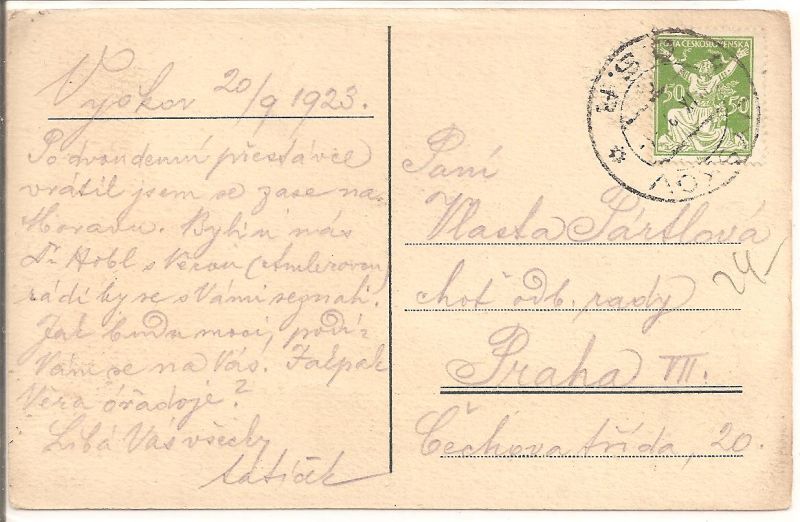 Vyškov 20/9 1923.
Po dvoudenní přestávce
vrátil jsem se zase na
Moravu. Byli u nás
Dr Hobl s Věrou
rádi by se s Vámi seznali.
Jak budu moci, podí-
vám se na Vás. Jakpak
Věra úřaduje?
Líbá Vás všecky
tatíček
POŠTA ČESKOSLOVENSKA
50 50
Paní
Vlasta Pártlová
choť odb. rady
Praha VII.
Čechova třída, 20.
24-